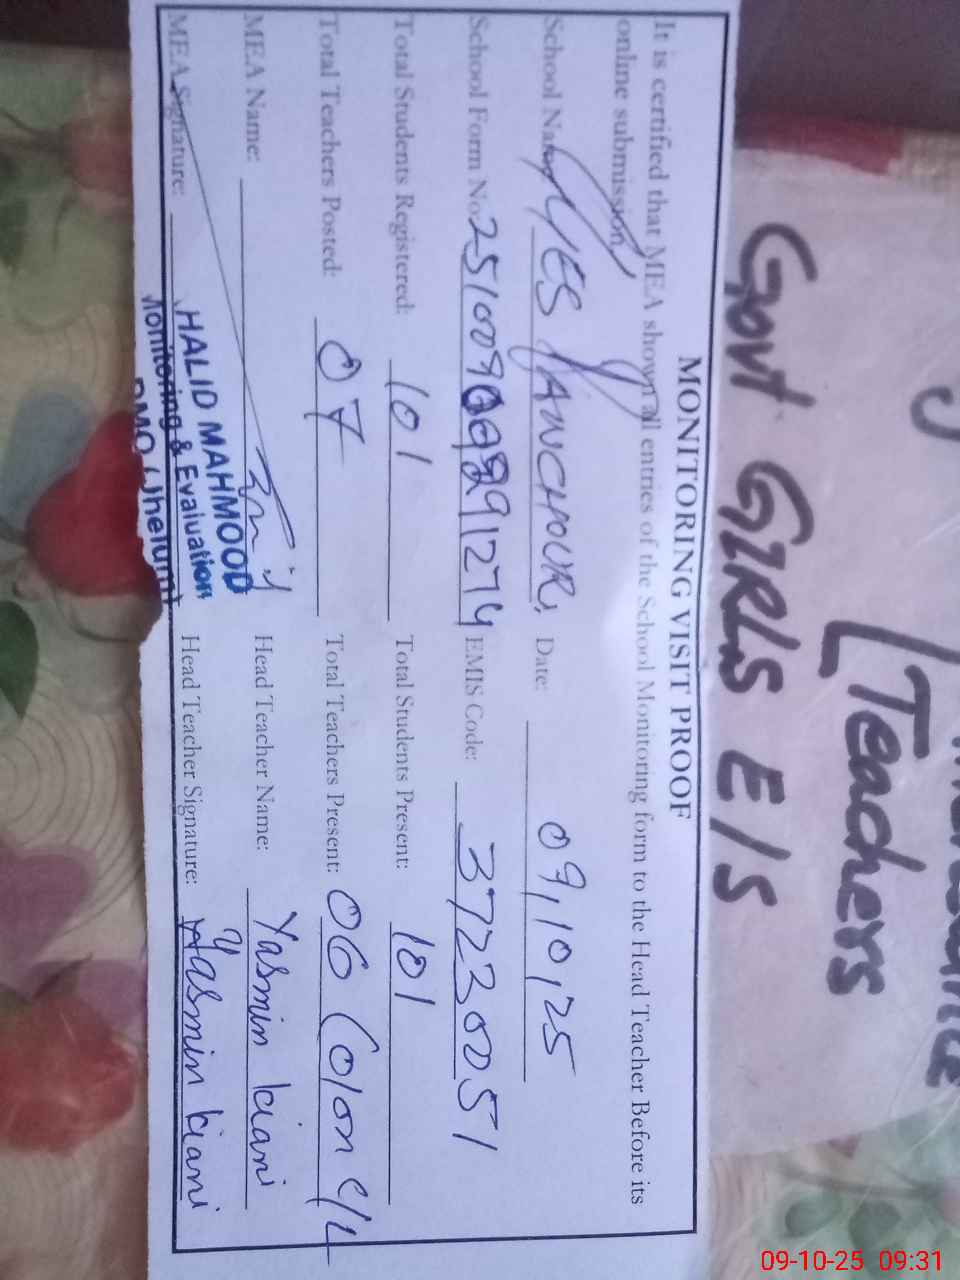 Teachers
GOVT GIRLS E/S
MONITORING VISIT PROOF
It is certified that MEA shown all entries of the School Monitoring form to the Head Teacher Before its
online submission.
School Name: GGES JANCHOUR, Date: 09,10,25
School Form No. EMIS Code: 37230051
Total Students Registered: 101 Total Students Present: 101
Total Teachers Posted: 07 Total Teachers Present: 06 (01 on C/L
MEA Name: Head Teacher Name: Yasmin kiani
MEA Signature: Head Teacher Signature: Yasmin kiani
HALID MAHMOOD
Monitoring & Evaluation
DMO (Jhelum)
09-10-25 09:31